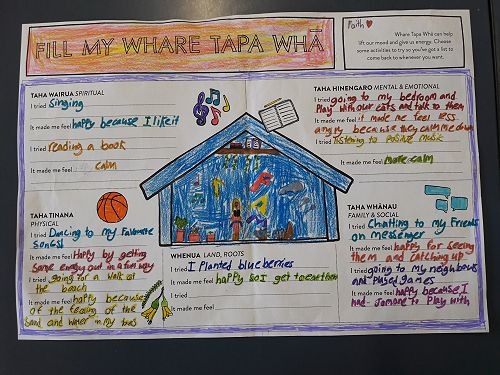 FILL MY WHARE TAPA WHĀ
Faith
Where Tapa Whā can help
lift our mood and give us energy. Choose
some activities to try so you've got a list to
come back to whenever you want.
TAHA WAIRUA SPIRITUAL
I tried singing
It made me feel happy because I like it
I tried reading a book
It made me feel calm
TAHA HINENGARO MENTAL & EMOTIONAL
I tried going to my bedroom and
Play with our cats and talk to them
It made me feel it made me feel less
angry because they calm me down
I tried listening to posive music
It made me feel more calm
TAHA TINANA
PHYSICAL
I tried Dancing to my favorite
songs!
It made me feel Happy by getting
some energy out in a fun way
I tried going for a walk at
the beach
It made me feel happy because
of the feeling of the
sand and water in my toes
WHENUA LAND, ROOTS
I tried I Planted blueberries
It made me feel happy so I get to eat them
I tried
It made me feel
TAHA WHĀNAU
FAMILY & SOCIAL
I tried Chatting to my Friends
on messenger
It made me feel happy for seeing
them and catching up
I tried going to my neighbours
and played games
It made me feel happy because I
had someone to Play with